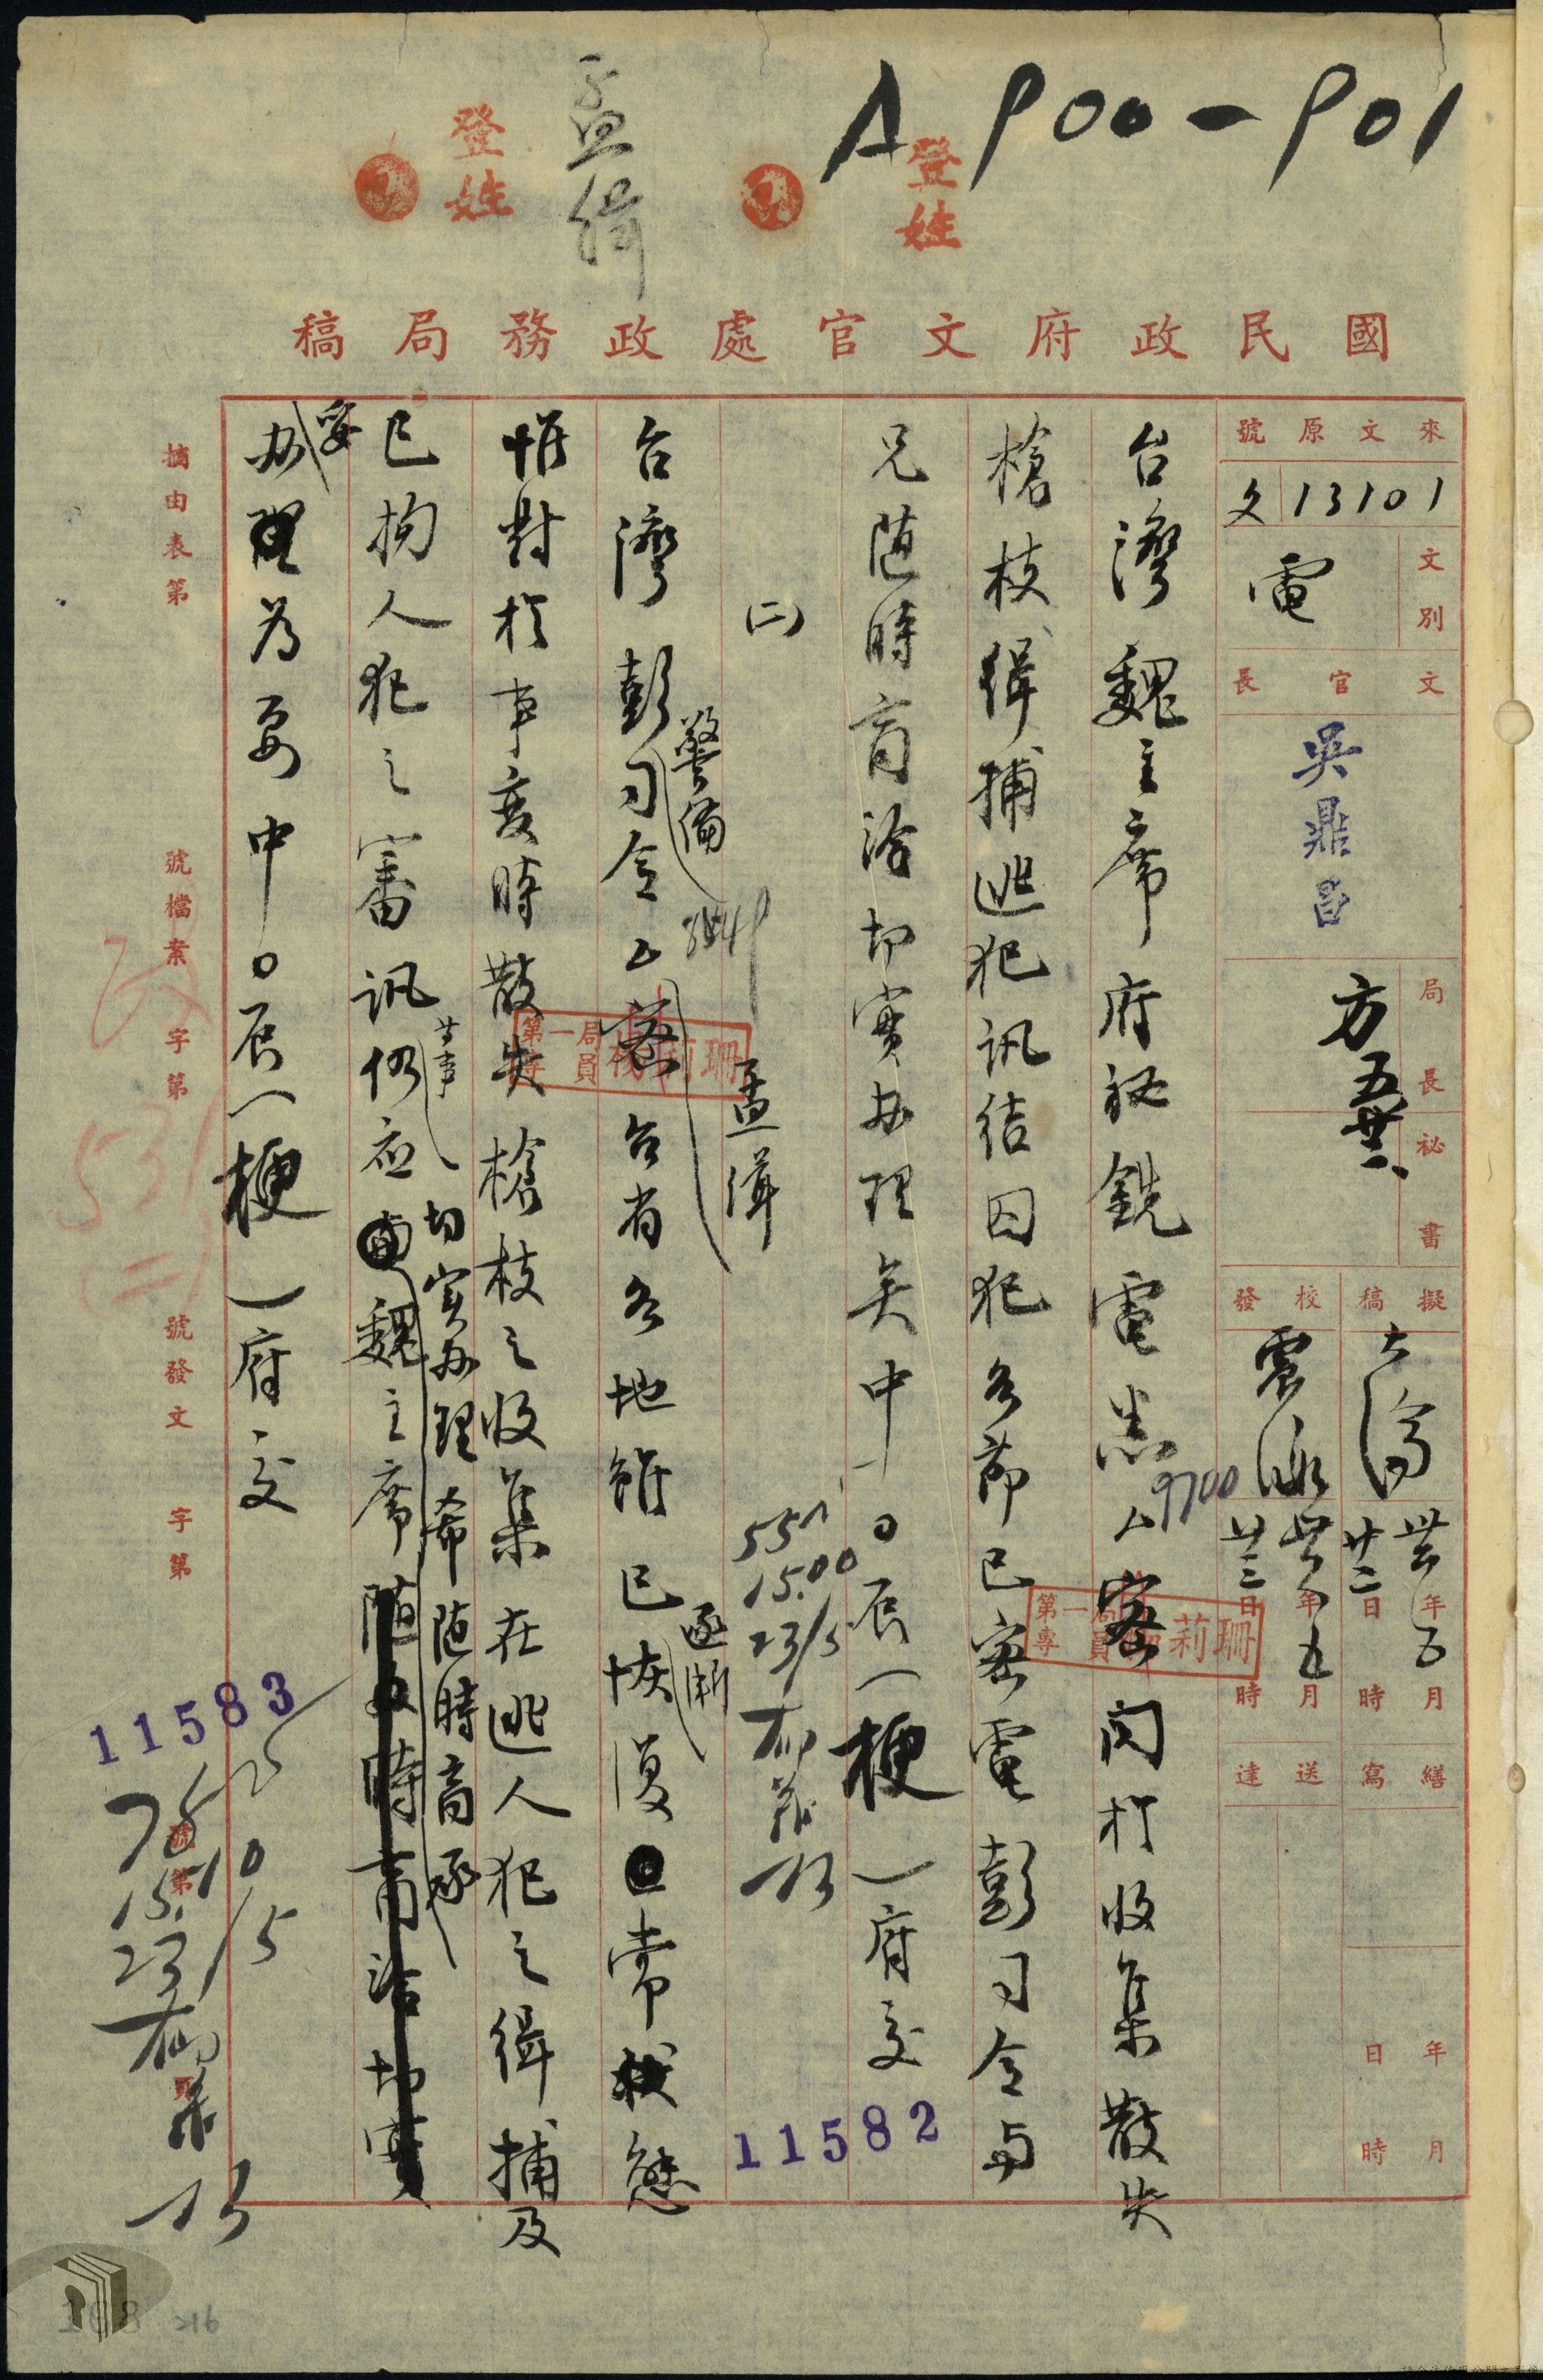 A900-901
登
姓
孟緝
登
姓
國民政府文官處政務局稿
來文原號
文13101
文別
電
文官長
吳鼎昌
局長
方
五 廿三
祕書
擬稿
卅六年五月廿二日 時
校發
震
卅六年五月廿三日 時
繕寫
年 月 日 時
送達
台灣魏主席府祕銑電悉密關於收集散失
9700
第一局專員 莉珊
槍枝緝捕逃犯訊結囚犯各節已密電彭司令與
兄隨時商洽切實办理矣中○辰(梗)府交
11582
557
15.00
23/5
(二)
孟緝
台灣警備彭司令 密台省各地雖已逐漸恢復常態
第一局專員 莉珊
惟對於事变時散失槍枝之收集在逃人犯之緝捕及
已拘人犯之審訊等事仍应切实办理希随時商承魏主席
隨時商洽切實
妥办為要中○辰(梗)府交
摘由表第 號檔案 字第 號發文 字第 號第 頁
11583
15.10
23/5